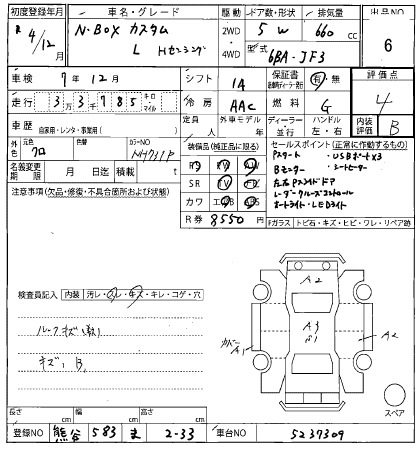 初度登録年月 車名・グレード 駆動 ドア数・形状 排気量 出品NO
R 4/12月 N-BOX カスタム 2WD 5 W 660 cc 6
L Hセンシング 4WD 型式 6BA-JF3
車検 7年 12月 シフト IA 保証書 有・無 評価点
走行 3万3千785 キロ マイル 冷房 AAC 燃料 G 4
車歴 自家用・レンタ・事業用( ) 定員 人 外車モデル 年 ディーラー 並行 ハンドル 左・右 内装評価 B
外色 元色 クロ 色替 カラーNO NH731P 装備品(純正品に限る) セールスポイント(正常に作動するもの)
Pスタート ・USBポートX3
名義変更期限 月 日迄 積載量 t Bモニター ・シートヒーター
SR 左右Pスライドドア
注意事項(欠品・修復・不具合箇所および状態) カワ エアB ABS レーダークルーズコントロール
R券 8550円 オートライト・LEDライト
Fガラス トビ石・キズ・ヒビ・ワレ・リペア跡
検査員記入 内装 汚レ・スレ・キズ・キレ・コゲ・穴
A2
ルーフキズ
A3
S1
カバー A1
A2
キズ: B
スペア
長さ cm 幅 cm 高さ cm
登録NO 熊谷 583 ま 2-33 車台NO 5237309